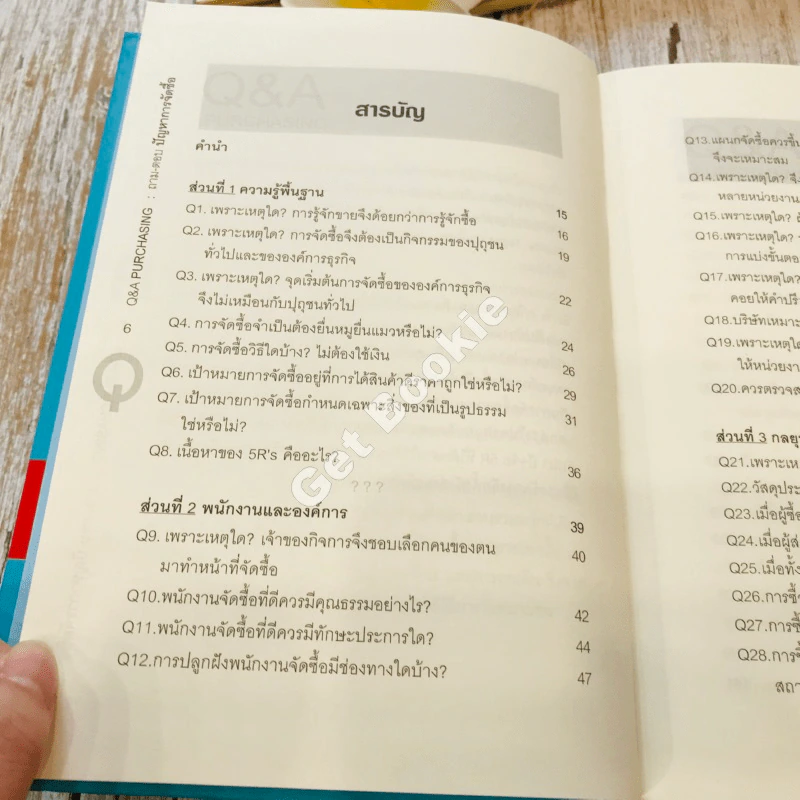 Q&A PURCHASING : ถาม-ตอบ ปัญหาการจัดซื้อ
6
Q&A
สารบัญ
คำนำ
ส่วนที่ 1 ความรู้พื้นฐาน 15
Q1. เพราะเหตุใด? การรู้จักขายจึงด้อยกว่าการรู้จักซื้อ 16
Q2. เพราะเหตุใด? การจัดซื้อจึงต้องเป็นกิจกรรมของปุถุชน 19
ทั่วไปและขององค์การธุรกิจ
Q3. เพราะเหตุใด? จุดเริ่มต้นการจัดซื้อขององค์การธุรกิจ 22
จึงไม่เหมือนกับปุถุชนทั่วไป
Q4. การจัดซื้อจำเป็นต้องยื่นหมูยื่นแมวหรือไม่? 24
Q5. การจัดซื้อวิธีใดบ้าง? ไม่ต้องใช้เงิน 26
Q6. เป้าหมายการจัดซื้ออยู่ที่การได้สินค้าดีราคาถูกใช่หรือไม่? 29
Q7. เป้าหมายการจัดซื้อกำหนดเฉพาะสิ่งของที่เป็นรูปธรรม 31
ใช่หรือไม่?
Q8. เนื้อหาของ 5R's คืออะไร? 36
? ? ?
ส่วนที่ 2 พนักงานและองค์การ 39
Q9. เพราะเหตุใด? เจ้าของกิจการจึงชอบเลือกคนของตน 40
มาทำหน้าที่จัดซื้อ
Q10.พนักงานจัดซื้อที่ดีควรมีคุณธรรมอย่างไร? 42
Q11.พนักงานจัดซื้อที่ดีควรมีทักษะประการใด? 44
Q12.การปลูกฝังพนักงานจัดซื้อมีช่องทางใดบ้าง? 47
Get Bookie
Q13.แผนกจัดซื้อควรขึ้น
จึงจะเหมาะสม
Q14.เพราะเหตุใด? จึง
หลายหน่วยงาน
Q15.เพราะเหตุใด?
Q16.เพราะเหตุใด?
การแบ่งขั้นตอ
Q17.เพราะเหตุใด?
คอยให้คำปรึ
Q18.บริษัทเหมาะ
Q19.เพราะเหตุใด
ให้หน่วยงา
Q20.ควรตรวจส
ส่วนที่ 3 กลยุ
Q21.เพราะเห
Q22.วัสดุประ
Q23.เมื่อผู้ซื้อ
Q24.เมื่อผู้ส่
Q25.เมื่อทั้ง
Q26.การซื้
Q27.การซื้
Q28.การซื้
สถา